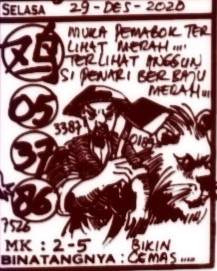 SELASA 29-DES-2020
鸡
MUKA PEMABOK TER
LIHAT MERAH ''''
TERLIHAT ANGGUN
SI PENARI BERBAJU
MERAH....
05
3387
37
86
7526
MK : 2-5 BIKIN
BINATANGNYA : CEMAS ....